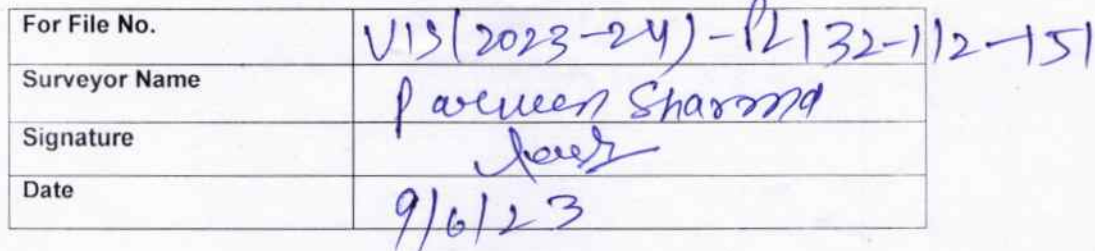 For File No. VIS(2023-24)-PL132-112-151
Surveyor Name Parveen Sharma
Signature
Date 9/6/23